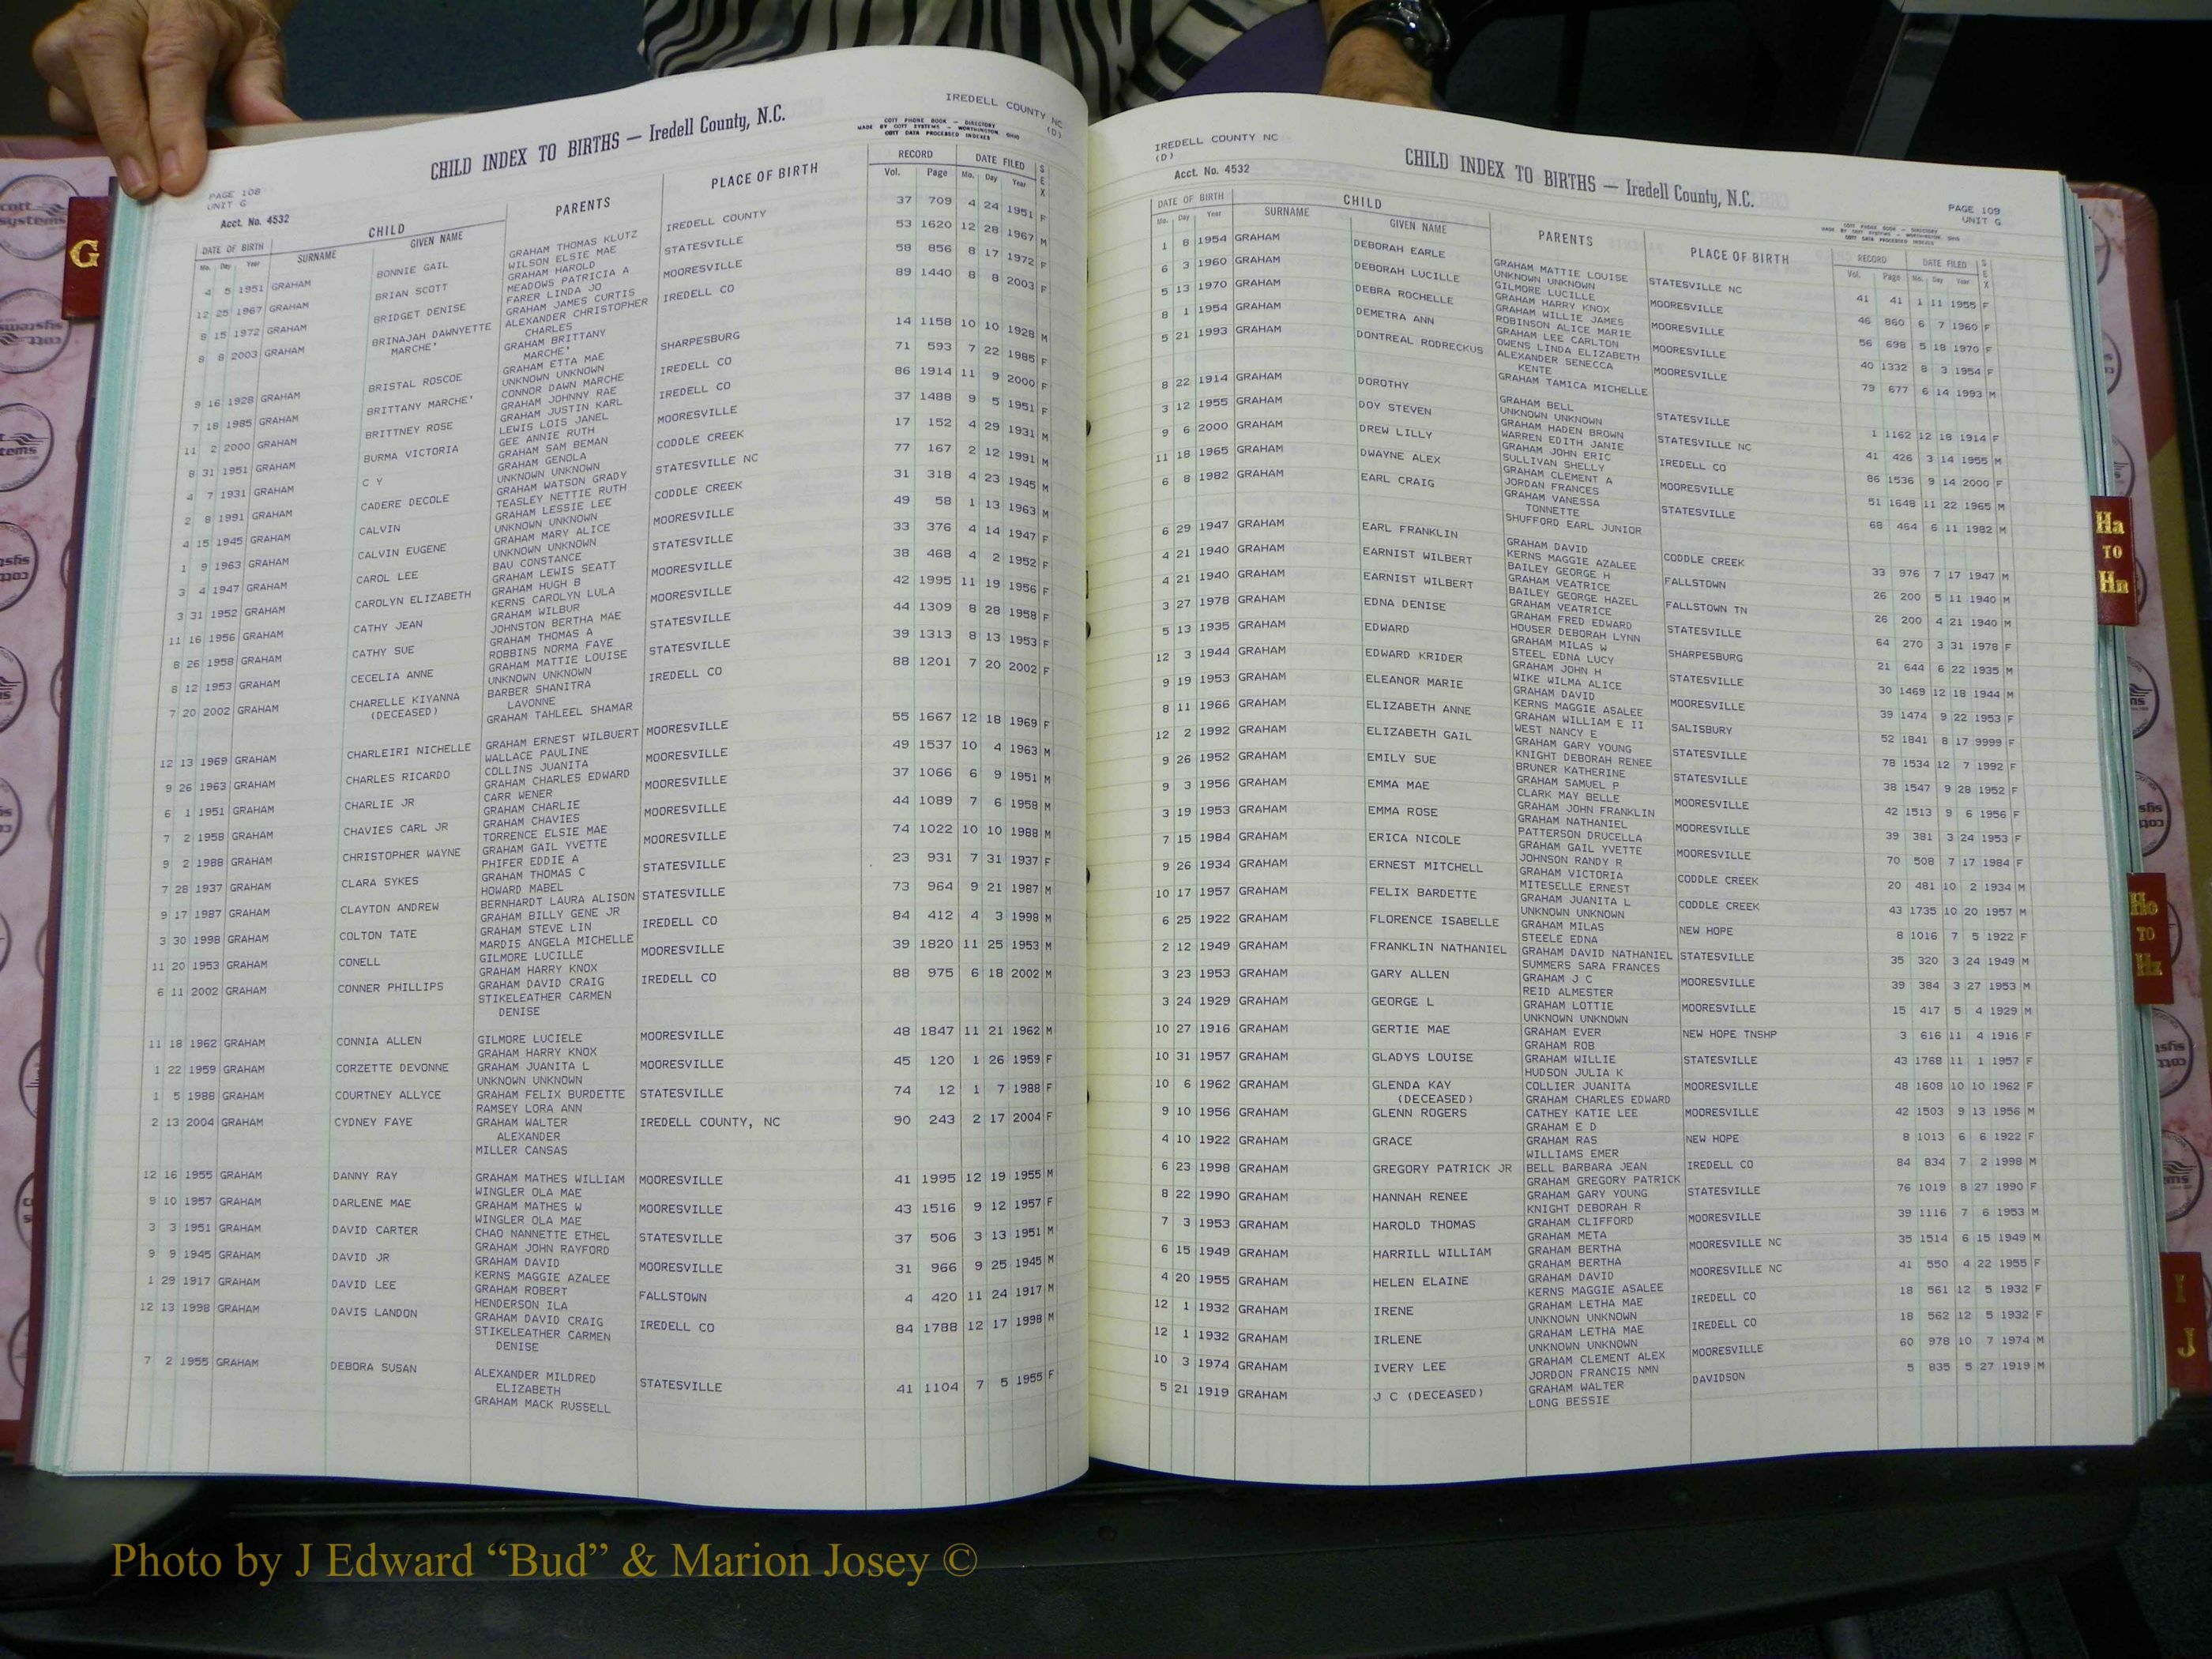 IREDELL COUNTY NC
(D)
CHILD INDEX TO BIRTHS — Iredell County, N.C.
COTT PHONE BOOK — DIRECTORY
MADE BY COTT SYSTEMS — WORTHINGTON OHIO
COTT DATA PROCESSED INDEXES
PAGE 108
UNIT G
Acct. No. 4532
CHILD PARENTS PLACE OF BIRTH RECORD DATE FILED SEX
DATE OF BIRTH SURNAME GIVEN NAME Vol. Page Mo. Day Year
Mo. Day Year
4 5 1951 GRAHAM BONNIE GAIL GRAHAM THOMAS KLUTZ IREDELL COUNTY 37 709 4 24 1951 F
WILSON ELSIE MAE
12 25 1967 GRAHAM BRIAN SCOTT GRAHAM HAROLD STATESVILLE 53 1620 12 28 1967 M
MEADOWS PATRICIA A
8 15 1972 GRAHAM BRIDGET DENISE FARER LINDA JO MOORESVILLE 58 856 8 17 1972 F
GRAHAM JAMES CURTIS
8 8 2003 GRAHAM BRINAJAH DAWNYETTE ALEXANDER CHRISTOPHER IREDELL CO 89 1440 8 8 2003 F
MARCHE' CHARLES
GRAHAM BRITTANY
MARCHE'
9 16 1928 GRAHAM BRISTAL ROSCOE GRAHAM ETTA MAE SHARPESBURG 14 1158 10 10 1928 M
UNKNOWN UNKNOWN
7 18 1985 GRAHAM BRITTANY MARCHE' CONNOR DAWN MARCHE IREDELL CO 71 593 7 22 1985 F
GRAHAM JOHNNY RAE
11 2 2000 GRAHAM BRITTNEY ROSE GRAHAM JUSTIN KARL IREDELL CO 86 1914 11 9 2000 F
LEWIS LOIS JANEL
8 31 1951 GRAHAM BURMA VICTORIA GEE ANNIE RUTH MOORESVILLE 37 1488 9 5 1951 F
GRAHAM SAM BEMAN
4 7 1931 GRAHAM C Y GRAHAM GENOLA CODDLE CREEK 17 152 4 29 1931 M
UNKNOWN UNKNOWN
2 8 1991 GRAHAM CADERE DECOLE GRAHAM WATSON GRADY STATESVILLE NC 77 167 2 12 1991 M
TEASLEY NETTIE RUTH
4 15 1945 GRAHAM CALVIN GRAHAM LESSIE LEE CODDLE CREEK 31 318 4 23 1945 M
UNKNOWN UNKNOWN
1 9 1963 GRAHAM CALVIN EUGENE GRAHAM MARY ALICE MOORESVILLE 49 58 1 13 1963 M
UNKNOWN UNKNOWN
3 4 1947 GRAHAM CAROL LEE BAU CONSTANCE STATESVILLE 33 376 4 14 1947 F
GRAHAM LEWIS SEATT
3 31 1952 GRAHAM CAROLYN ELIZABETH GRAHAM HUGH B MOORESVILLE 38 468 4 2 1952 F
KERNS CAROLYN LULA
11 16 1956 GRAHAM CATHY JEAN GRAHAM WILBUR MOORESVILLE 42 1995 11 19 1956 F
JOHNSTON BERTHA MAE
8 26 1958 GRAHAM CATHY SUE GRAHAM THOMAS A STATESVILLE 44 1309 8 28 1958 F
ROBBINS NORMA FAYE
8 12 1953 GRAHAM CECELIA ANNE GRAHAM MATTIE LOUISE STATESVILLE 39 1313 8 13 1953 F
UNKNOWN UNKNOWN
7 20 2002 GRAHAM CHARELLE KIYANNA BARBER SHANITRA IREDELL CO 88 1201 7 20 2002 F
(DECEASED) LAVONNE
GRAHAM TAHLEEL SHAMAR
12 13 1969 GRAHAM CHARLEIRI NICHELLE GRAHAM ERNEST WILBUERT MOORESVILLE 55 1667 12 18 1969 F
WALLACE PAULINE
9 26 1963 GRAHAM CHARLES RICARDO COLLINS JUANITA MOORESVILLE 49 1537 10 4 1963 M
GRAHAM CHARLES EDWARD
6 1 1951 GRAHAM CHARLIE JR CARR WENER MOORESVILLE 37 1066 6 9 1951 M
GRAHAM CHARLIE
7 2 1958 GRAHAM CHAVIES CARL JR GRAHAM CHAVIES MOORESVILLE 44 1089 7 6 1958 M
TORRENCE ELSIE MAE
9 2 1988 GRAHAM CHRISTOPHER WAYNE GRAHAM GAIL YVETTE MOORESVILLE 74 1022 10 10 1988 M
PHIFER EDDIE A
7 28 1937 GRAHAM CLARA SYKES GRAHAM THOMAS C STATESVILLE 23 931 7 31 1937 F
HOWARD MABEL
9 17 1987 GRAHAM CLAYTON ANDREW BERNHARDT LAURA ALISON STATESVILLE 73 964 9 21 1987 M
GRAHAM BILLY GENE JR
3 30 1998 GRAHAM COLTON TATE GRAHAM STEVE LIN IREDELL CO 84 412 4 3 1998 M
MARDIS ANGELA MICHELLE
11 20 1953 GRAHAM CONELL GILMORE LUCILLE MOORESVILLE 39 1820 11 25 1953 M
GRAHAM HARRY KNOX
6 11 2002 GRAHAM CONNER PHILLIPS GRAHAM DAVID CRAIG IREDELL CO 88 975 6 18 2002 M
STIKELEATHER CARMEN
DENISE
11 18 1962 GRAHAM CONNIA ALLEN GILMORE LUCIELE MOORESVILLE 48 1847 11 21 1962 M
GRAHAM HARRY KNOX
1 22 1959 GRAHAM CORZETTE DEVONNE GRAHAM JUANITA L MOORESVILLE 45 120 1 26 1959 F
UNKNOWN UNKNOWN
1 5 1988 GRAHAM COURTNEY ALLYCE GRAHAM FELIX BURDETTE STATESVILLE 74 12 1 7 1988 F
RAMSEY LORA ANN
2 13 2004 GRAHAM CYDNEY FAYE GRAHAM WALTER IREDELL COUNTY, NC 90 243 2 17 2004 F
ALEXANDER
MILLER CANSAS
12 16 1955 GRAHAM DANNY RAY GRAHAM MATHES WILLIAM MOORESVILLE 41 1995 12 19 1955 M
WINGLER OLA MAE
9 10 1957 GRAHAM DARLENE MAE GRAHAM MATHES W MOORESVILLE 43 1516 9 12 1957 F
WINGLER OLA MAE
3 3 1951 GRAHAM DAVID CARTER CHAO NANNETTE ETHEL STATESVILLE 37 506 3 13 1951 M
GRAHAM JOHN RAYFORD
9 9 1945 GRAHAM DAVID JR GRAHAM DAVID MOORESVILLE 31 966 9 25 1945 M
KERNS MAGGIE AZALEE
1 29 1917 GRAHAM DAVID LEE GRAHAM ROBERT FALLSTOWN 4 420 11 24 1917 M
HENDERSON ILA
12 13 1998 GRAHAM DAVIS LANDON GRAHAM DAVID CRAIG IREDELL CO 84 1788 12 17 1998 M
STIKELEATHER CARMEN
DENISE
7 2 1955 GRAHAM DEBORA SUSAN ALEXANDER MILDRED STATESVILLE 41 1104 7 5 1955 F
ELIZABETH
GRAHAM MACK RUSSELL
IREDELL COUNTY NC
(D)
Acct. No. 4532
CHILD INDEX TO BIRTHS — Iredell County, N.C.
PAGE 109
UNIT G
COTT PHONE BOOK — DIRECTORY
MADE BY COTT SYSTEMS — WORTHINGTON OHIO
COTT DATA PROCESSED INDEXES
DATE OF BIRTH CHILD PARENTS PLACE OF BIRTH RECORD DATE FILED SEX
Mo. Day Year SURNAME GIVEN NAME Vol. Page Mo. Day Year
1 8 1954 GRAHAM DEBORAH EARLE GRAHAM MATTIE LOUISE STATESVILLE NC 41 41 1 11 1955 F
UNKNOWN UNKNOWN
6 3 1960 GRAHAM DEBORAH LUCILLE GILMORE LUCILLE MOORESVILLE 46 860 6 7 1960 F
GRAHAM HARRY KNOX
5 13 1970 GRAHAM DEBRA ROCHELLE GRAHAM WILLIE JAMES MOORESVILLE 56 698 5 18 1970 F
ROBINSON ALICE MARIE
8 1 1954 GRAHAM DEMETRA ANN GRAHAM LEE CARLTON MOORESVILLE 40 1332 8 3 1954 F
OWENS LINDA ELIZABETH
5 21 1993 GRAHAM DONTREAL RODRECKUS ALEXANDER SENECCA MOORESVILLE 79 677 6 14 1993 M
KENTE
GRAHAM TAMICA MICHELLE
8 22 1914 GRAHAM DOROTHY GRAHAM BELL STATESVILLE 1 1162 12 18 1914 F
UNKNOWN UNKNOWN
3 12 1955 GRAHAM DOY STEVEN GRAHAM HADEN BROWN STATESVILLE NC 41 426 3 14 1955 M
WARREN EDITH JANIE
9 6 2000 GRAHAM DREW LILLY GRAHAM JOHN ERIC IREDELL CO 86 1536 9 14 2000 F
SULLIVAN SHELLY
11 18 1965 GRAHAM DWAYNE ALEX GRAHAM CLEMENT A MOORESVILLE 51 1648 11 22 1965 M
JORDAN FRANCES
6 8 1982 GRAHAM EARL CRAIG GRAHAM VANESSA STATESVILLE 68 464 6 11 1982 M
TONNETTE
SHUFFORD EARL JUNIOR
6 29 1947 GRAHAM EARL FRANKLIN GRAHAM DAVID CODDLE CREEK 33 976 7 17 1947 M
KERNS MAGGIE AZALEE
4 21 1940 GRAHAM EARNIST WILBERT BAILEY GEORGE H FALLSTOWN 26 200 5 11 1940 M
GRAHAM VEATRICE
4 21 1940 GRAHAM EARNIST WILBERT BAILEY GEORGE HAZEL FALLSTOWN TN 26 200 4 21 1940 M
GRAHAM VEATRICE
3 27 1978 GRAHAM EDNA DENISE GRAHAM FRED EDWARD STATESVILLE 64 270 3 31 1978 F
HOUSER DEBORAH LYNN
5 13 1935 GRAHAM EDWARD GRAHAM MILAS W SHARPESBURG 21 644 6 22 1935 M
STEEL EDNA LUCY
12 3 1944 GRAHAM EDWARD KRIDER GRAHAM JOHN H STATESVILLE 30 1469 12 18 1944 M
WIKE WILMA ALICE
9 19 1953 GRAHAM ELEANOR MARIE GRAHAM DAVID MOORESVILLE 39 1474 9 22 1953 F
KERNS MAGGIE ASALEE
8 11 1966 GRAHAM ELIZABETH ANNE GRAHAM WILLIAM E II SALISBURY 52 1841 8 17 9999 F
WEST NANCY E
12 2 1992 GRAHAM ELIZABETH GAIL GRAHAM GARY YOUNG STATESVILLE 78 1534 12 7 1992 F
KNIGHT DEBORAH RENEE
9 26 1952 GRAHAM EMILY SUE BRUNER KATHERINE STATESVILLE 38 1547 9 28 1952 F
GRAHAM SAMUEL P
9 3 1956 GRAHAM EMMA MAE CLARK MAY BELLE MOORESVILLE 42 1513 9 6 1956 F
GRAHAM JOHN FRANKLIN
3 19 1953 GRAHAM EMMA ROSE GRAHAM NATHANIEL MOORESVILLE 39 381 3 24 1953 F
PATTERSON DRUCELLA
7 15 1984 GRAHAM ERICA NICOLE GRAHAM GAIL YVETTE MOORESVILLE 70 508 7 17 1984 F
JOHNSON RANDY R
9 26 1934 GRAHAM ERNEST MITCHELL GRAHAM VICTORIA CODDLE CREEK 20 481 10 2 1934 M
MITESELLE ERNEST
10 17 1957 GRAHAM FELIX BARDETTE GRAHAM JUANITA L CODDLE CREEK 43 1735 10 20 1957 M
UNKNOWN UNKNOWN
6 25 1922 GRAHAM FLORENCE ISABELLE GRAHAM MILAS NEW HOPE 8 1016 7 5 1922 F
STEELE EDNA
2 12 1949 GRAHAM FRANKLIN NATHANIEL GRAHAM DAVID NATHANIEL STATESVILLE 35 320 3 24 1949 M
SUMMERS SARA FRANCES
3 23 1953 GRAHAM GARY ALLEN GRAHAM J C MOORESVILLE 39 384 3 27 1953 M
REID ALMESTER
3 24 1929 GRAHAM GEORGE L GRAHAM LOTTIE MOORESVILLE 15 417 5 4 1929 M
UNKNOWN UNKNOWN
10 27 1916 GRAHAM GERTIE MAE GRAHAM EVER NEW HOPE TNSHP 3 616 11 4 1916 F
GRAHAM ROB
10 31 1957 GRAHAM GLADYS LOUISE GRAHAM WILLIE STATESVILLE 43 1768 11 1 1957 F
HUDSON JULIA K
10 6 1962 GRAHAM GLENDA KAY COLLIER JUANITA MOORESVILLE 48 1608 10 10 1962 F
(DECEASED) GRAHAM CHARLES EDWARD
9 10 1956 GRAHAM GLENN ROGERS CATHEY KATIE LEE MOORESVILLE 42 1503 9 13 1956 M
GRAHAM E D
4 10 1922 GRAHAM GRACE GRAHAM RAS NEW HOPE 8 1013 6 6 1922 F
WILLIAMS EMER
6 23 1998 GRAHAM GREGORY PATRICK JR BELL BARBARA JEAN IREDELL CO 84 834 7 2 1998 M
GRAHAM GREGORY PATRICK
8 22 1990 GRAHAM HANNAH RENEE GRAHAM GARY YOUNG STATESVILLE 76 1019 8 27 1990 F
KNIGHT DEBORAH R
7 3 1953 GRAHAM HAROLD THOMAS GRAHAM CLIFFORD MOORESVILLE 39 1116 7 6 1953 M
GRAHAM META
6 15 1949 GRAHAM HARRILL WILLIAM GRAHAM BERTHA MOORESVILLE NC 35 1514 6 15 1949 M
GRAHAM BERTHA
4 20 1955 GRAHAM HELEN ELAINE GRAHAM DAVID MOORESVILLE NC 41 550 4 22 1955 F
KERNS MAGGIE ASALEE
12 1 1932 GRAHAM IRENE GRAHAM LETHA MAE IREDELL CO 18 561 12 5 1932 F
UNKNOWN UNKNOWN
12 1 1932 GRAHAM IRLENE GRAHAM LETHA MAE IREDELL CO 18 562 12 5 1932 F
UNKNOWN UNKNOWN
10 3 1974 GRAHAM IVERY LEE GRAHAM CLEMENT ALEX MOORESVILLE 60 978 10 7 1974 M
JORDON FRANCIS NMN
5 21 1919 GRAHAM J C (DECEASED) GRAHAM WALTER DAVIDSON 5 835 5 27 1919 M
LONG BESSIE
G
Ha
TO
Hn
Ho
TO
Hz
I
J
Photo by J Edward “Bud” & Marion Josey ©